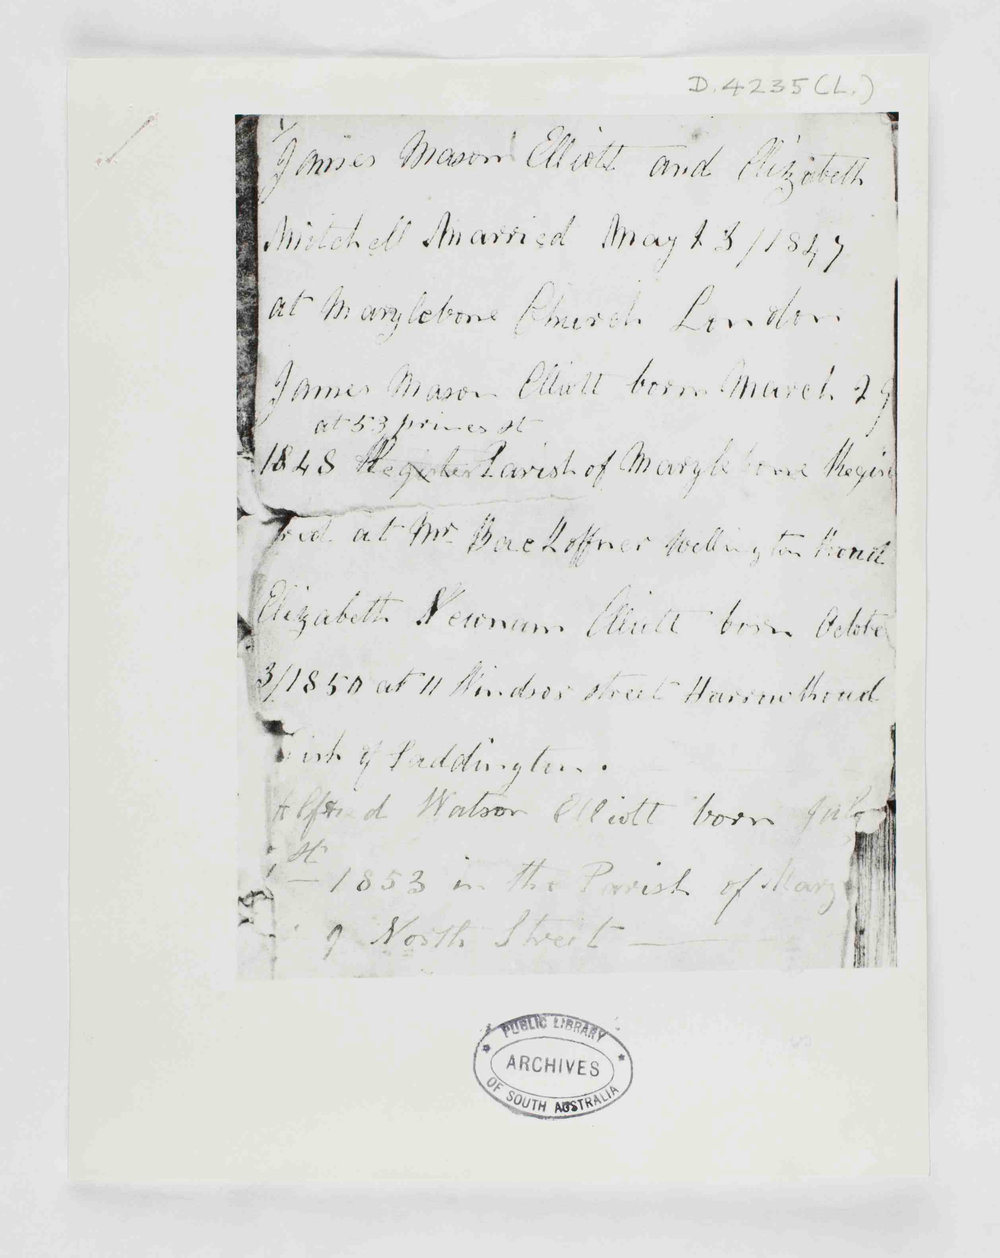 D.4235(L.)
James Mason Elliott and Elizabeth
Mitchell Married May 23/1847
at Marylebone Church London
James Mason Elliott born March 29
at 53 princes st
1848 Register Parish of Marylebone Regis
tred at Mr. Backoffner Wellington Road
Elizabeth Newnum Elliott born Octobe
3/1850 at 11 Windsor street Harrow Road
rish of Paddington.
Alfred Watson Elliott born July
st 1853 in the Parish of Mary
9 North Street
PUBLIC LIBRARY
ARCHIVES
OF SOUTH AUSTRALIA